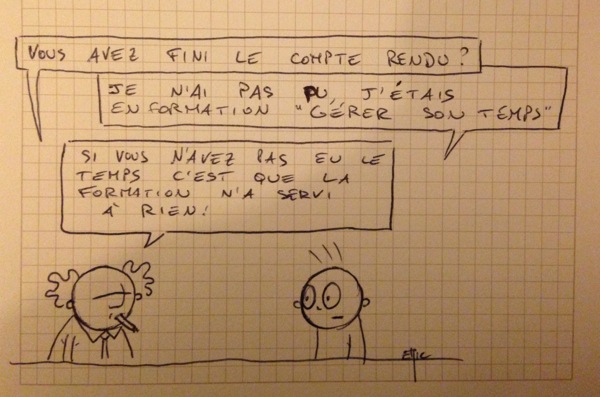 VOUS AVEZ FINI LE COMPTE RENDU?
JE N'AI PAS PU, J'ÉTAIS
EN FORMATION "GÉRER SON TEMPS"
SI VOUS N'AVEZ PAS EU LE
TEMPS C'EST QUE LA
FORMATION N'A SERVI
À RIEN!